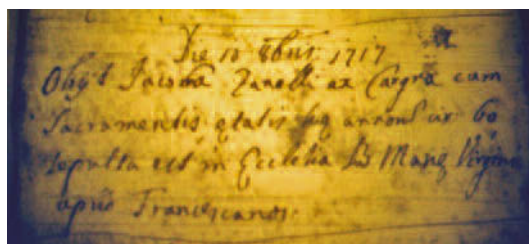 Die 10 8bris 1717
Obijt Jacoba Zanolli ex Cargna cum
Sacramentis etatis suę annorũ cir 60
sepulta est in Ecclesia Virginis
apud Franciscanos.